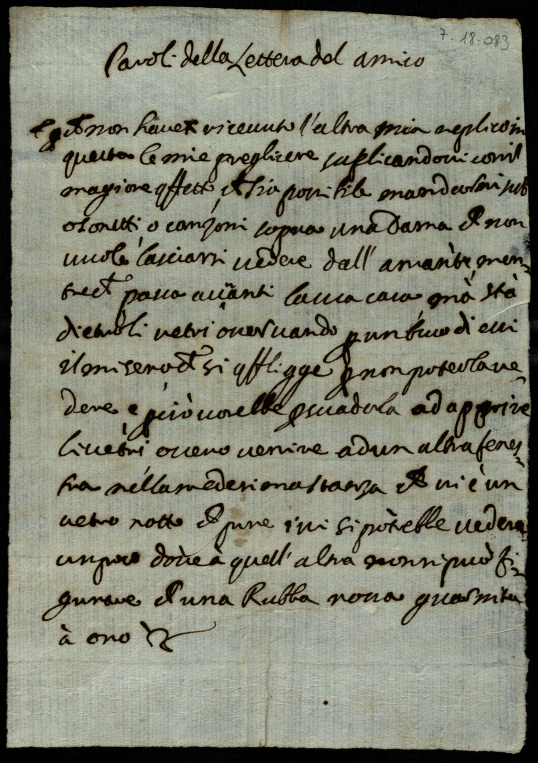 7-18.083
Paroli della Lettera del amico
non havete ricevuto l'altra mia replico in
questa le mie preghiere suplicandovi con il
magiore possibile mandarmi
o sonetti o canzoni sopra una Dama non
vuole lasciarsi vedere dall' amante, men
tre passa avanti la sua casa mà stà
dietro li vetri osservando di cui
il misero si affligge non poterla ve
dere e ciò vorebbe ad apprire
li vetri overo venire ad un altra fenes
tra nella medesima stanza vi è un
vetro rotto pure ivi si potrebbe vedere
un poco dove à quell' altra non si può fi
gurare una Rubba rossa guarnita
à oro